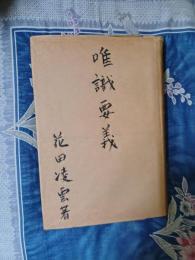 唯識要義
花田凌雲著